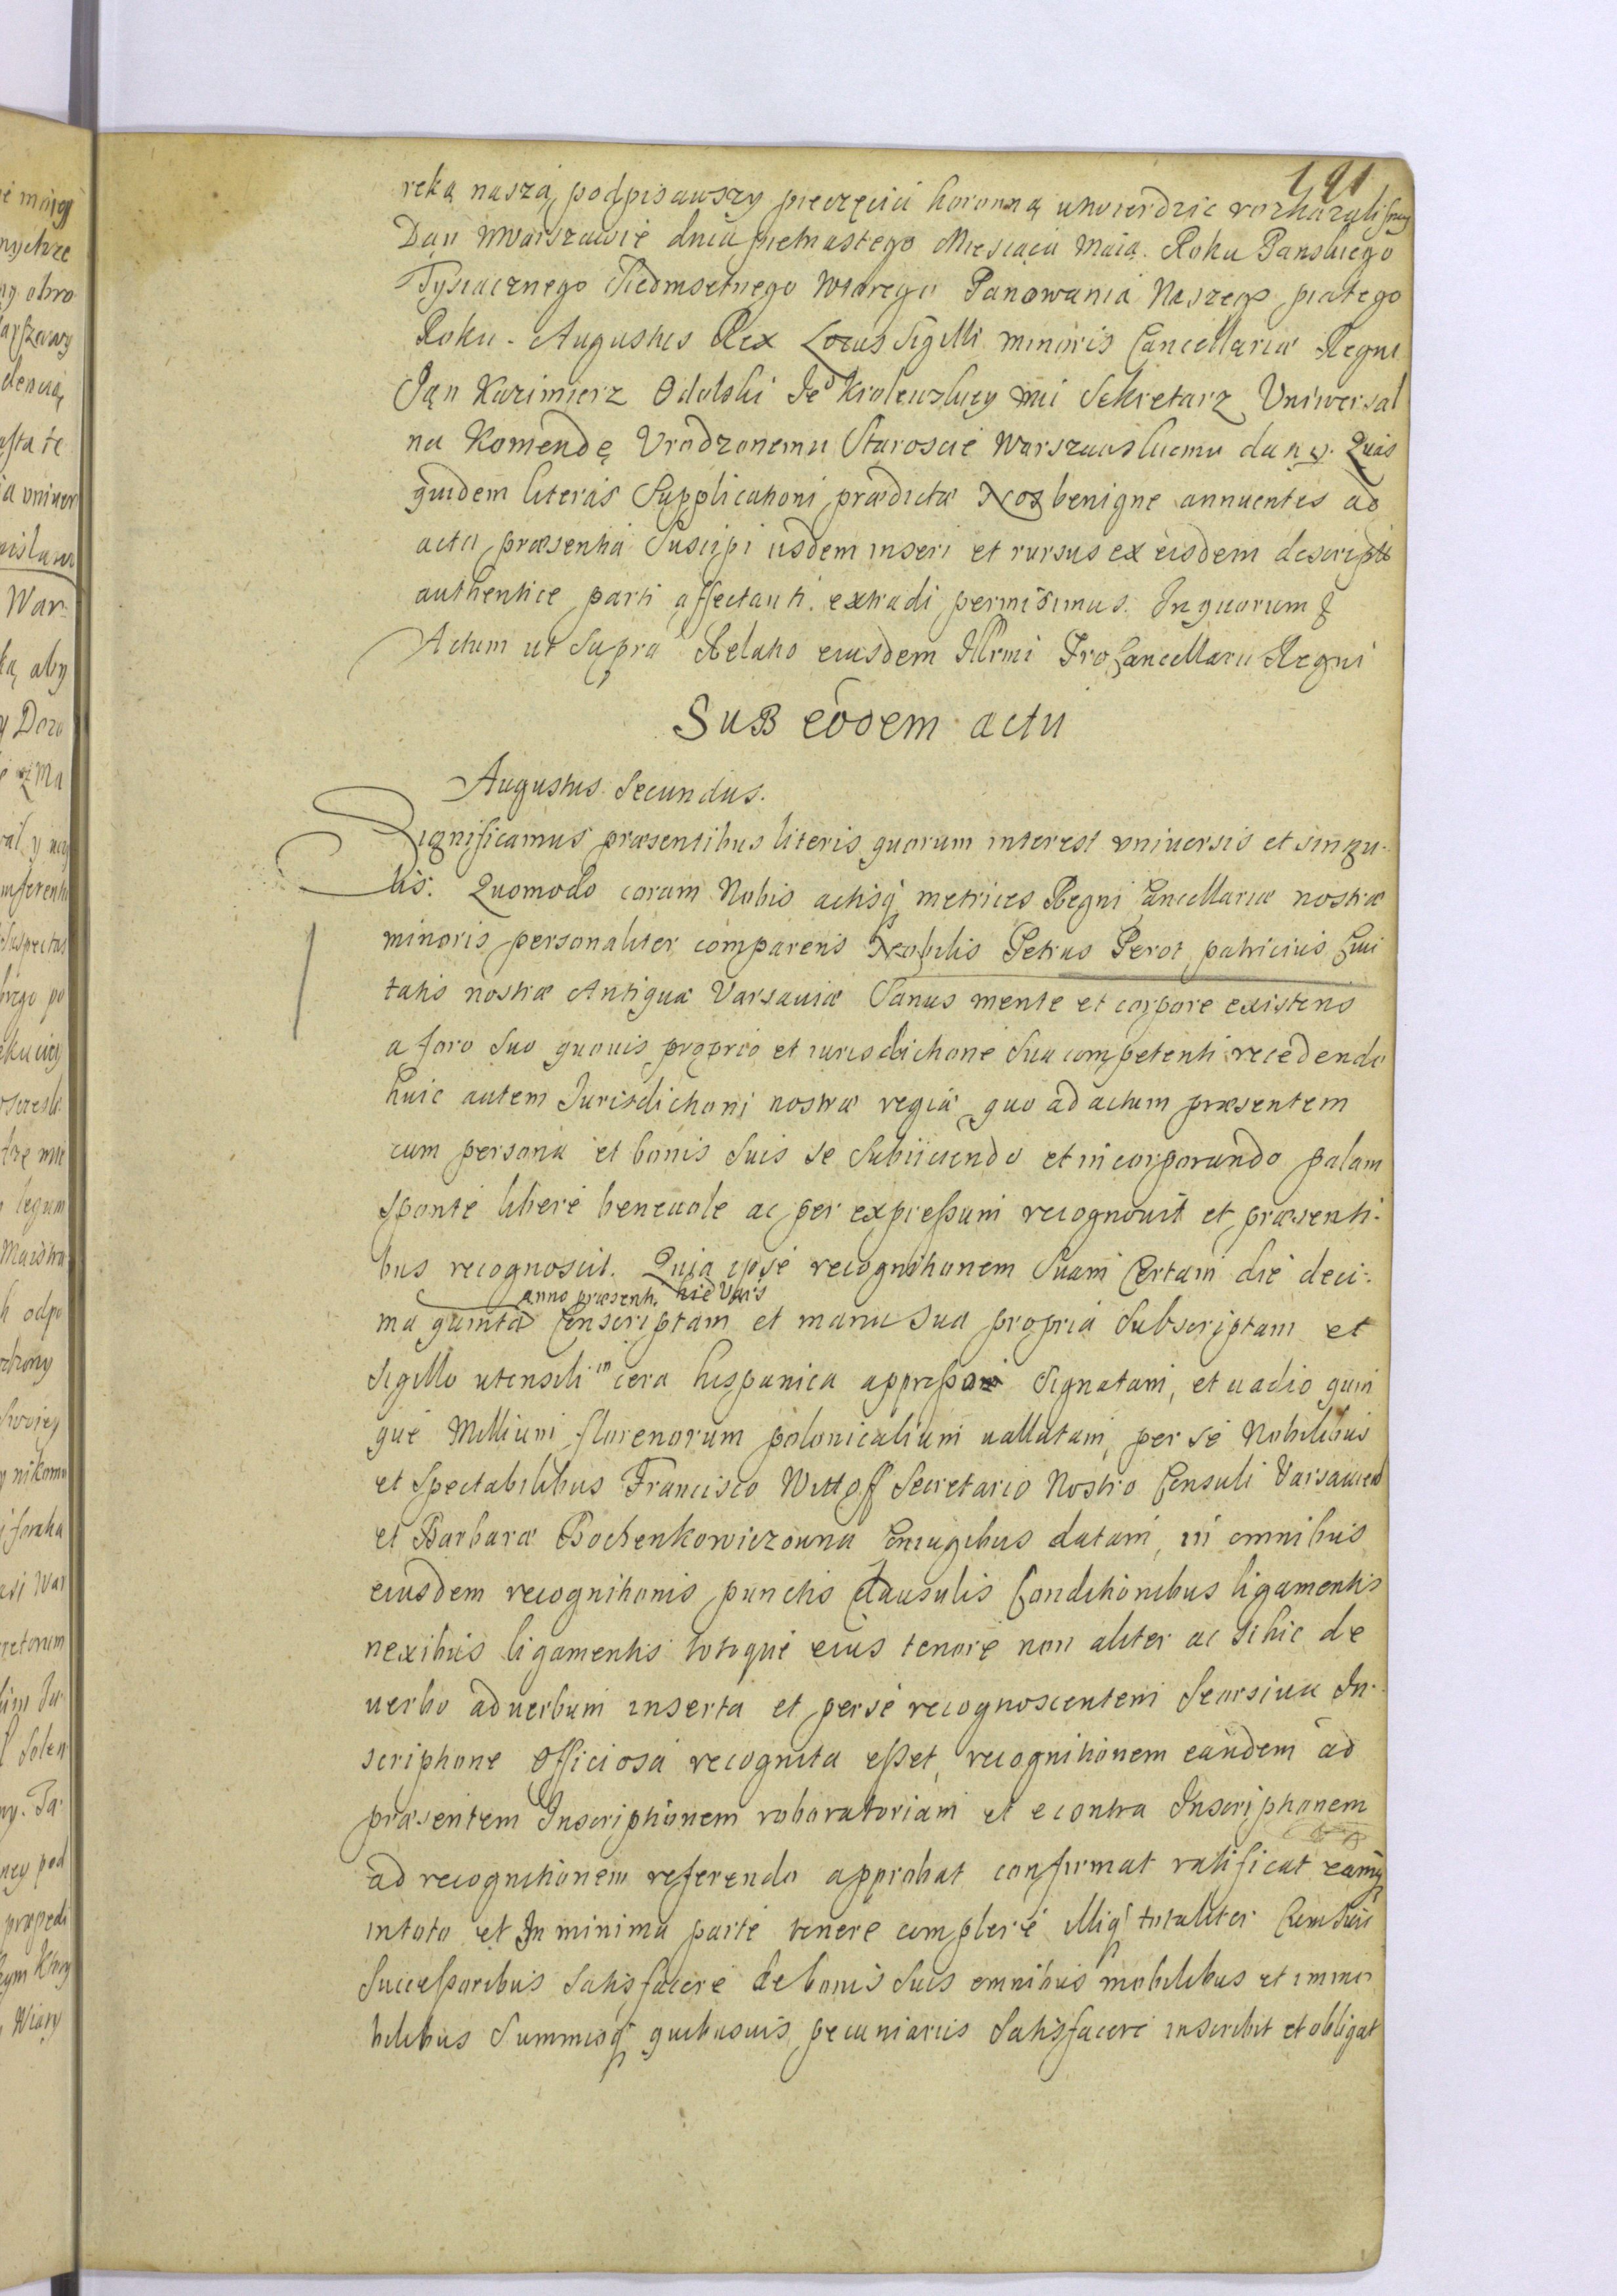 191
reką naszą podpisawszy pieczęcią koronną utwierdzic rozkazalismy
Dan w Warszawie dnia pietnastego Miesiąca Maia. Roku Panskiego
Tysiącznego Siedmsetnego wtorego Panowania Naszego piątego
Roku. Augustus Rex Locus Sigilli minoris Cancellariæ Regni
Jan Kazimierz Odolski Je⁰ Krolewskiey mci Sekretarz Uniwersał
na Komendę Vrodzonemu Staroscie Warszawskiemu dany. Quas
quidem literas Supplicationi prædictæ Nos benigne annuentes ad
acta præsentia Suscipi iisdem inseri et rursus ex eisdem descripti
authentice parti affectanti extradi permisimus. In quorum &
Actum ut Supra Relatio eiusdem Illrmi ProCancellarii Regni
SuB eodem actu
Augustus Secundus.
Significamus præsentibus literis quorum interest vniuersis et singu-
lis. Quomodo coram Nobis actisq metrices Regni Cancellariæ nostræ
minoris personaliter comparens Nobilis Petrus Perot patricius Ciui
tatis nostræ Antiquæ Varsauiæ Sanus mente et corpore existens
a foro Suo quouis proprio et iurisdictione Sua competenti recedendo
huic autem Jurisdictioni nostræ regiæ quo ad actum præsentem
cum persona et bonis Suis se Subiiciendo et incorporando palam
sponte libere beneuole ac per expreßum recognouit et præsenti-
bus recognoscit. Quia ipse recognitionem Suam Certam die deci-
anno præsenti hic Vars
ma quinta Conscriptam et manu sua propria Subscriptam et
Sigillo utensili in cera hispanica appreßo Signatam, et uadio quin
que Millium florenorum polonicalium uallatam, per se Nobilibus
et Spectabilibus Francisco Wittoff Secretario Nostro Consuli Varsauien
et Barbaræ Bochenkowiczowna Coniugibus datam, in omnibus
eiusdem recognitionis punctis Clausulis Conditionibus ligamentis
nexibus ligamentis totoque eius tenore non aliter ac si hic de
uerbo ad uerbum inserta et per se recognoscentem Seorsiua In-
scriptione officiosa recognita eßet, recognitionem eandem ad
præsentem Inscriptionem roboratoriam et e contra Inscriptionem
ad recognitionem referendo approbat confirmat ratificat eamq
in toto et In minima parte tenere complere illiq totaliter Cum Suis
Succeßoribus Satisfacere de bonis Suis omnibus mobilibus et immo
bilibus Summisq quibusuis pecuniariis Satisfacere inscribit et obligat